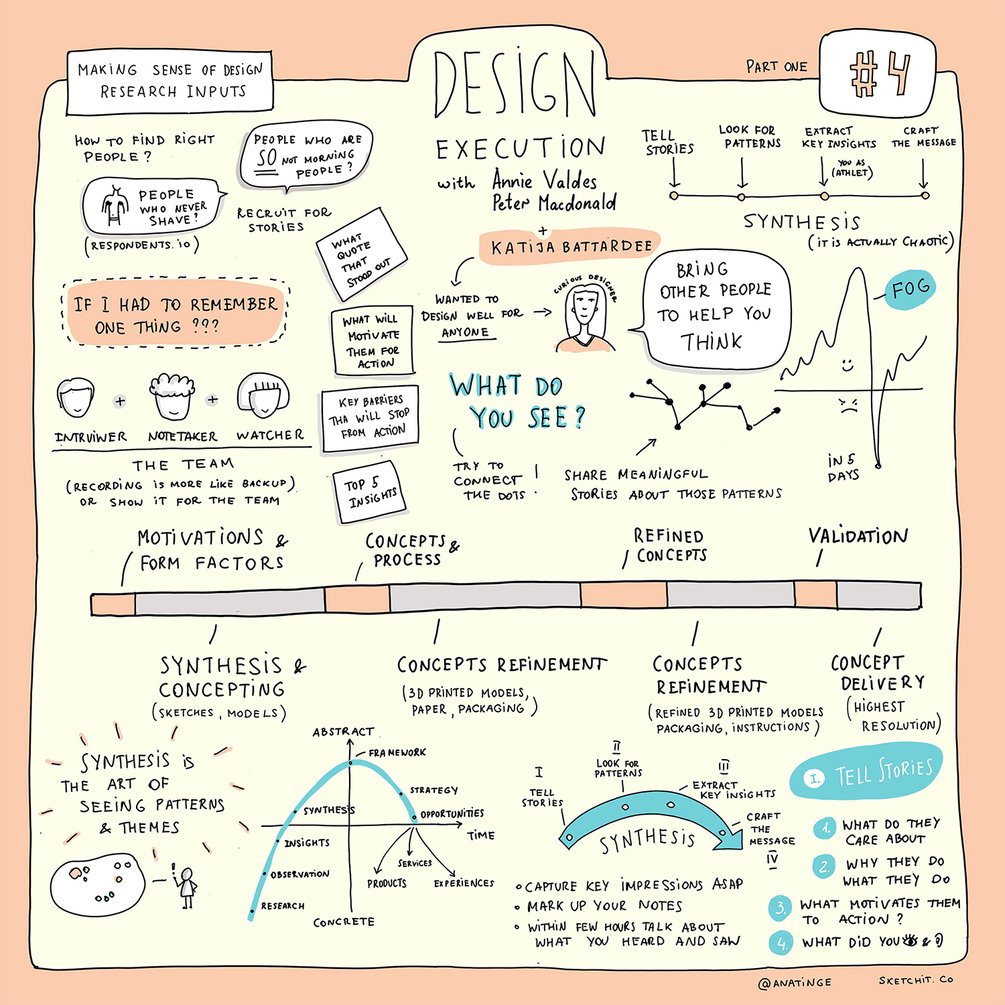 MAKING SENSE OF DESIGN
RESEARCH INPUTS
DESIGN
EXECUTION
with Annie Valdes
Peter Macdonald
+
KATIJA BATTARDEE
PART ONE
#4
HOW TO FIND RIGHT
PEOPLE?
PEOPLE WHO ARE
SO NOT MORNING
PEOPLE?
PEOPLE
WHO NEVER
SHAVE?
(RESPONDENTS.io)
RECRUIT FOR
STORIES
TELL
STORIES
LOOK FOR
PATTERNS
EXTRACT
KEY INSIGHTS
(YOU AS
(ATHLET)
CRAFT
THE MESSAGE
SYNTHESIS
(IT IS ACTUALLY CHAOTIC)
IF I HAD TO REMEMBER
ONE THING ???
WHAT
QUOTE
THAT
STOOD OUT
WHAT WILL
MOTIVATE
THEM FOR
ACTION
KEY BARRIERS
THA WILL STOP
FROM ACTION
TOP 5
INSIGHTS
WANTED TO
DESIGN WELL FOR
ANYONE
CURIOUS DESIGNER
BRING
OTHER PEOPLE
TO HELP YOU
THINK
FOG
IN 5
DAYS
INTRVIWER + NOTETAKER + WATCHER
THE TEAM
(RECORDING IS MORE LIKE BACKUP)
OR SHOW IT FOR THE TEAM
WHAT DO
YOU SEE?
TRY TO
CONNECT
THE DOTS!
SHARE MEANINGFUL
STORIES ABOUT THOSE PATTERNS
MOTIVATIONS &
FORM FACTORS
CONCEPTS &
PROCESS
REFINED
CONCEPTS
VALIDATION
SYNTHESIS &
CONCEPTING
(SKETCHES, MODELS)
CONCEPTS REFINEMENT
(3D PRINTED MODELS,
PAPER, PACKAGING)
CONCEPTS
REFINEMENT
(REFINED 3D PRINTED MODELS
PACKAGING, INSTRUCTIONS)
CONCEPT
DELIVERY
(HIGHEST
RESOLUTION)
SYNTHESIS IS
THE ART OF
SEEING PATTERNS
& THEMES
ABSTRACT
FRAMEWORK
STRATEGY
SYNTHESIS
OPPORTUNITIES
TIME
INSIGHTS
SERVICES
OBSERVATION
PRODUCTS
EXPERIENCES
RESEARCH
CONCRETE
I
TELL
STORIES
II
LOOK FOR
PATTERNS
III
EXTRACT
KEY INSIGHTS
CRAFT
THE
MESSAGE
IV
SYNTHESIS
CAPTURE KEY IMPRESSIONS ASAP
MARK UP YOUR NOTES
WITHIN FEW HOURS TALK ABOUT
WHAT YOU HEARD AND SAW
I. TELL STORIES
1. WHAT DO THEY
CARE ABOUT
2. WHY THEY DO
WHAT THEY DO
3. WHAT MOTIVATES THEM
TO ACTION?
4. WHAT DID YOU &
@ANATINGE
SKETCHIT.CO